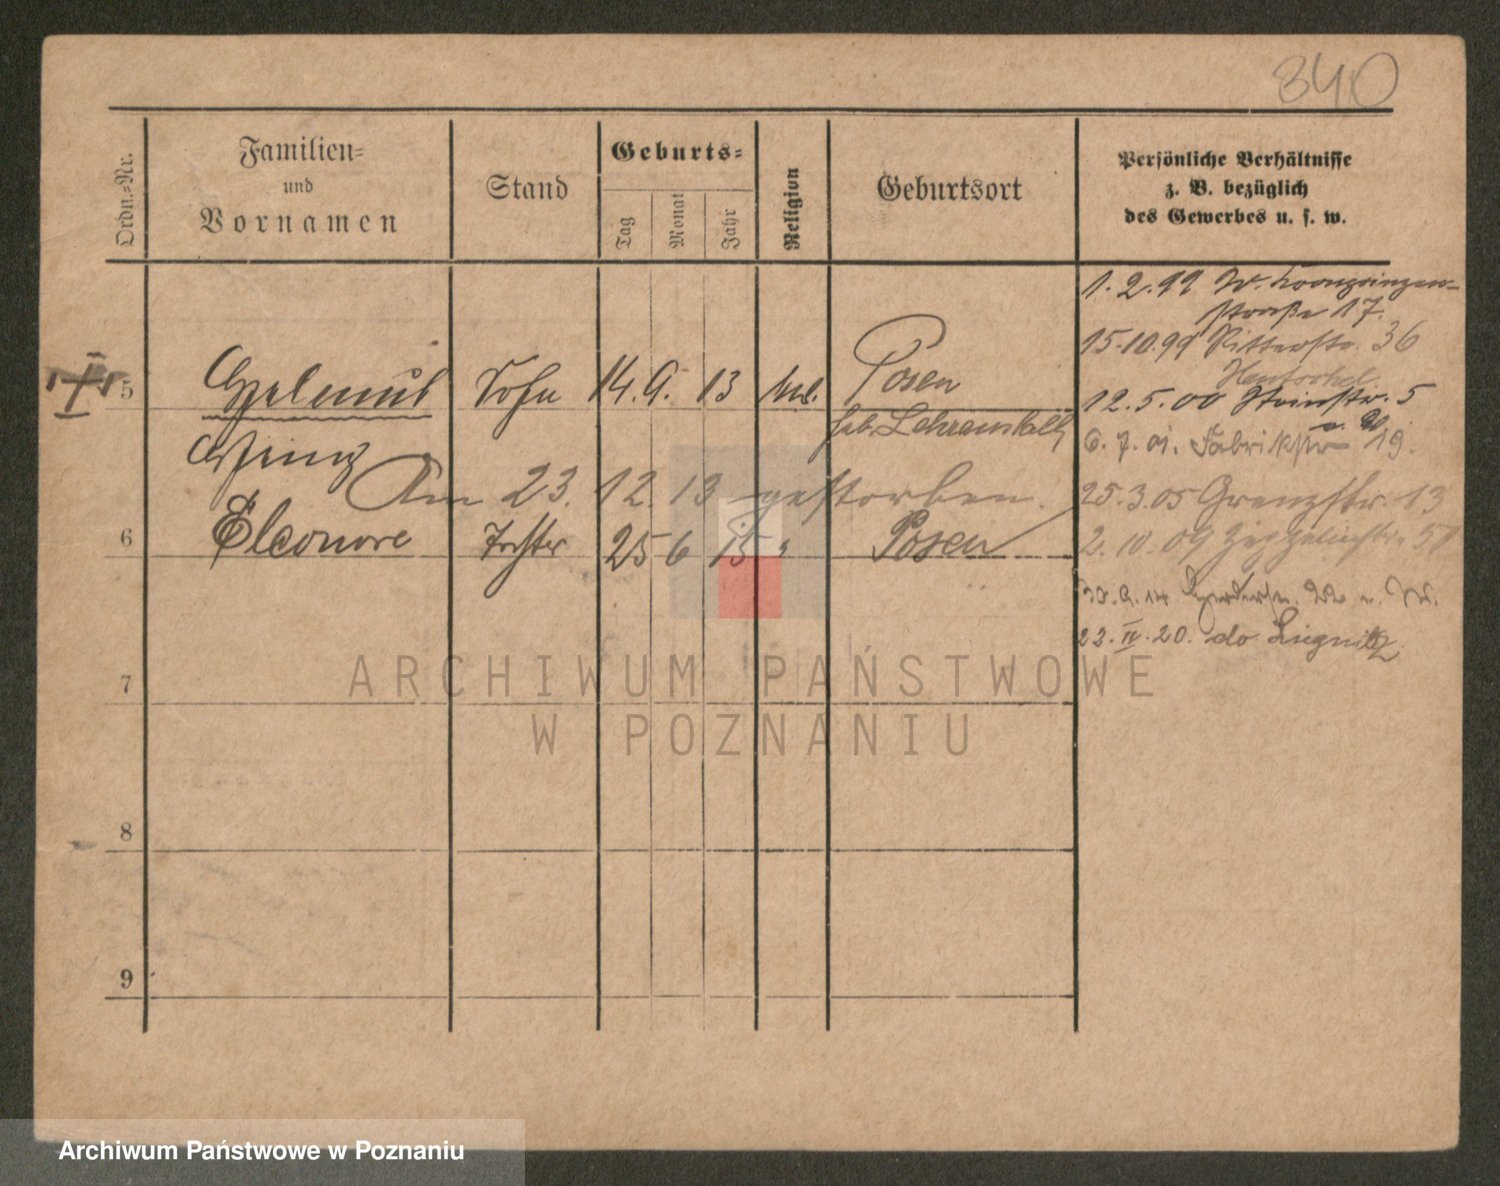 340
Ordn.=Nr.
Familien=
und
Vornamen
Stand
Geburts=
Tag
Monat
Jahr
Religion
Geburtsort
Persönliche Verhältnisse
z. B. bezüglich
des Gewerbes u. s. w.
1.2.99 W. Kronprinzen-
straße 17.
15.10.99 Ritterstr. 36
Hentschel
5 Helmut Sohn 14. 9. 13 Posen
12.5.00 Steinstr. 5
geb. Lehranstalt
6.7.01. Fabrikstr 19.
Heinz
Am 23. 12. 13 gestorben.
25.3.05 Grenzstr. 13
6 Eleonore Tochter 25 6 15 " Posen
2.10.09
30.9.14
22.IV.20. do Liegnitz
7
8
9
ARCHIWUM PAŃSTWOWE
W POZNANIU
Archiwum Państwowe w Poznaniu